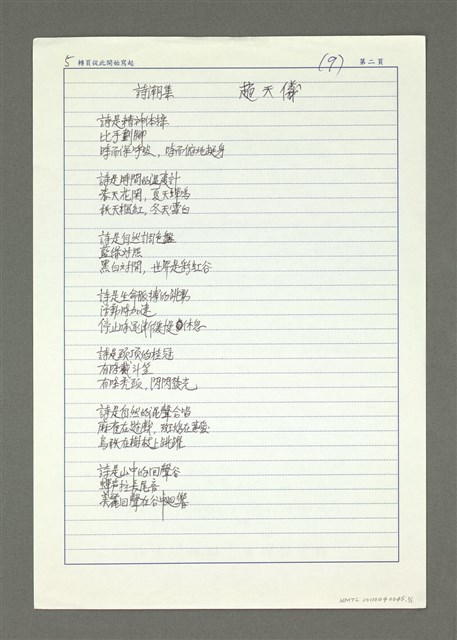 5 轉頁從此開始寫起 (9) 第二頁
詩潮集 趙天儀
詩是精神体操
比手劃腳
時而深呼吸，時而俯地挺身
詩是時間的温度計
春天花開，夏天蟬鳴
秋天楓紅，冬天雪白
詩是自然調色盤
藍綠对照
黑白对間，世界是彩虹谷
詩是生命脈搏的跳動
活動時加速
停止時逐漸緩慢休息
詩是頭頂的桂冠
有時戴斗笠
有時禿頭，閃閃發光
詩是自然的混聲合唱
麻雀在遊戲，斑鳩在
烏秋在樹枝上跳躍
詩是山中的回聲谷
蟬声拉長尾音
美麗回聲在谷中迴響